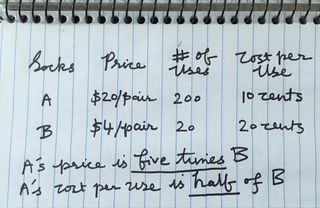 Socks Price # of Uses Cost per Use
A $20/pair 200 10 cents
B $4/pair 20 20 cents
A's price is five times B
A's cost per use is half of B